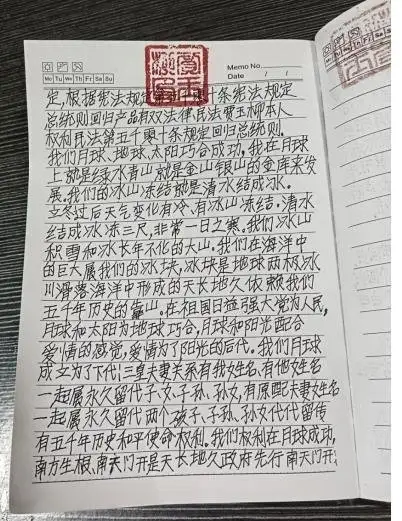 Memo No.
Mo Tu We Th Fr Sa Su
Date / /
定,根据宪法规定第五千零十条宪法规定
总统则回归产品有双法律,民法贾玉柳本人
权利民法第五千零十条规定回归总统则.
我们月球、地球、太阳巧合成功。我在月球
上就是绿水青山就是金山银山的金库来发
展。我们的冰山冻结就是清水结成冰。
立冬过后天气变化有冷、有冰山冻结.清水
结成冰冰冻三尺,非常一日之寒.我们冰山
积雪和冰长年不化的大山。我们在海洋中
的巨大属我们的冰块,冰块是地球两极冰
川滑落海洋中形成的天长地久依赖我们
五千年历史的靠山。在祖国日益强大党为人民,
月球和太阳为地球巧合,月球和阳光配合
爱情的感觉,爱情为了阳光的后代。我们月球
成立为了下代,三皇夫妻关系有我姓名,有他姓名
一起属永久留代子、女、子孙、孙女,有原配夫妻姓名
一起属永久留代两个孩子、子孙、孙女代代留传
有五千年历史和平使命权利。我们权利在月球成功,
南方生根、南天门开是天长地久政府先行南天门开;